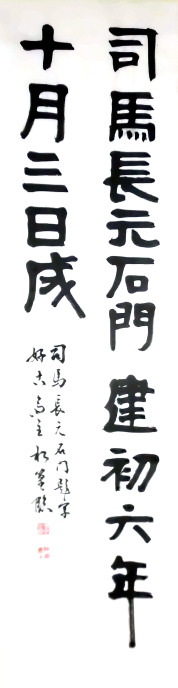 司馬長元石門建初六年
十月三日成
司马长元石门题字
好古